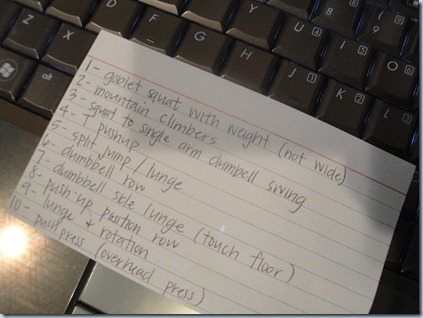 1- goblet squat with weight (not wide)
2- mountain climbers
3- squat to single arm dumbell swing
4- T pushup
5- split jump / lunge
6- dumbbell row
7- dumbbell side lunge (touch floor)
8- push-up position row
9- lunge & rotation
10- push press (overhead press)